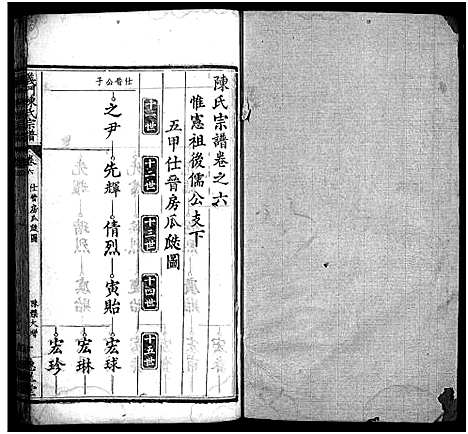 陳氏宗譜卷之六
惟憲祖後儒公支下
五甲仕晉房瓜瓞圖
十一世
十二世
十三世
十四世
十五世
仕晉公子
之尹
先輝
倩烈
寅貽
宏球
宏琳
宏珍
義門陳氏宗譜
卷六
仕晉房瓜瓞圖